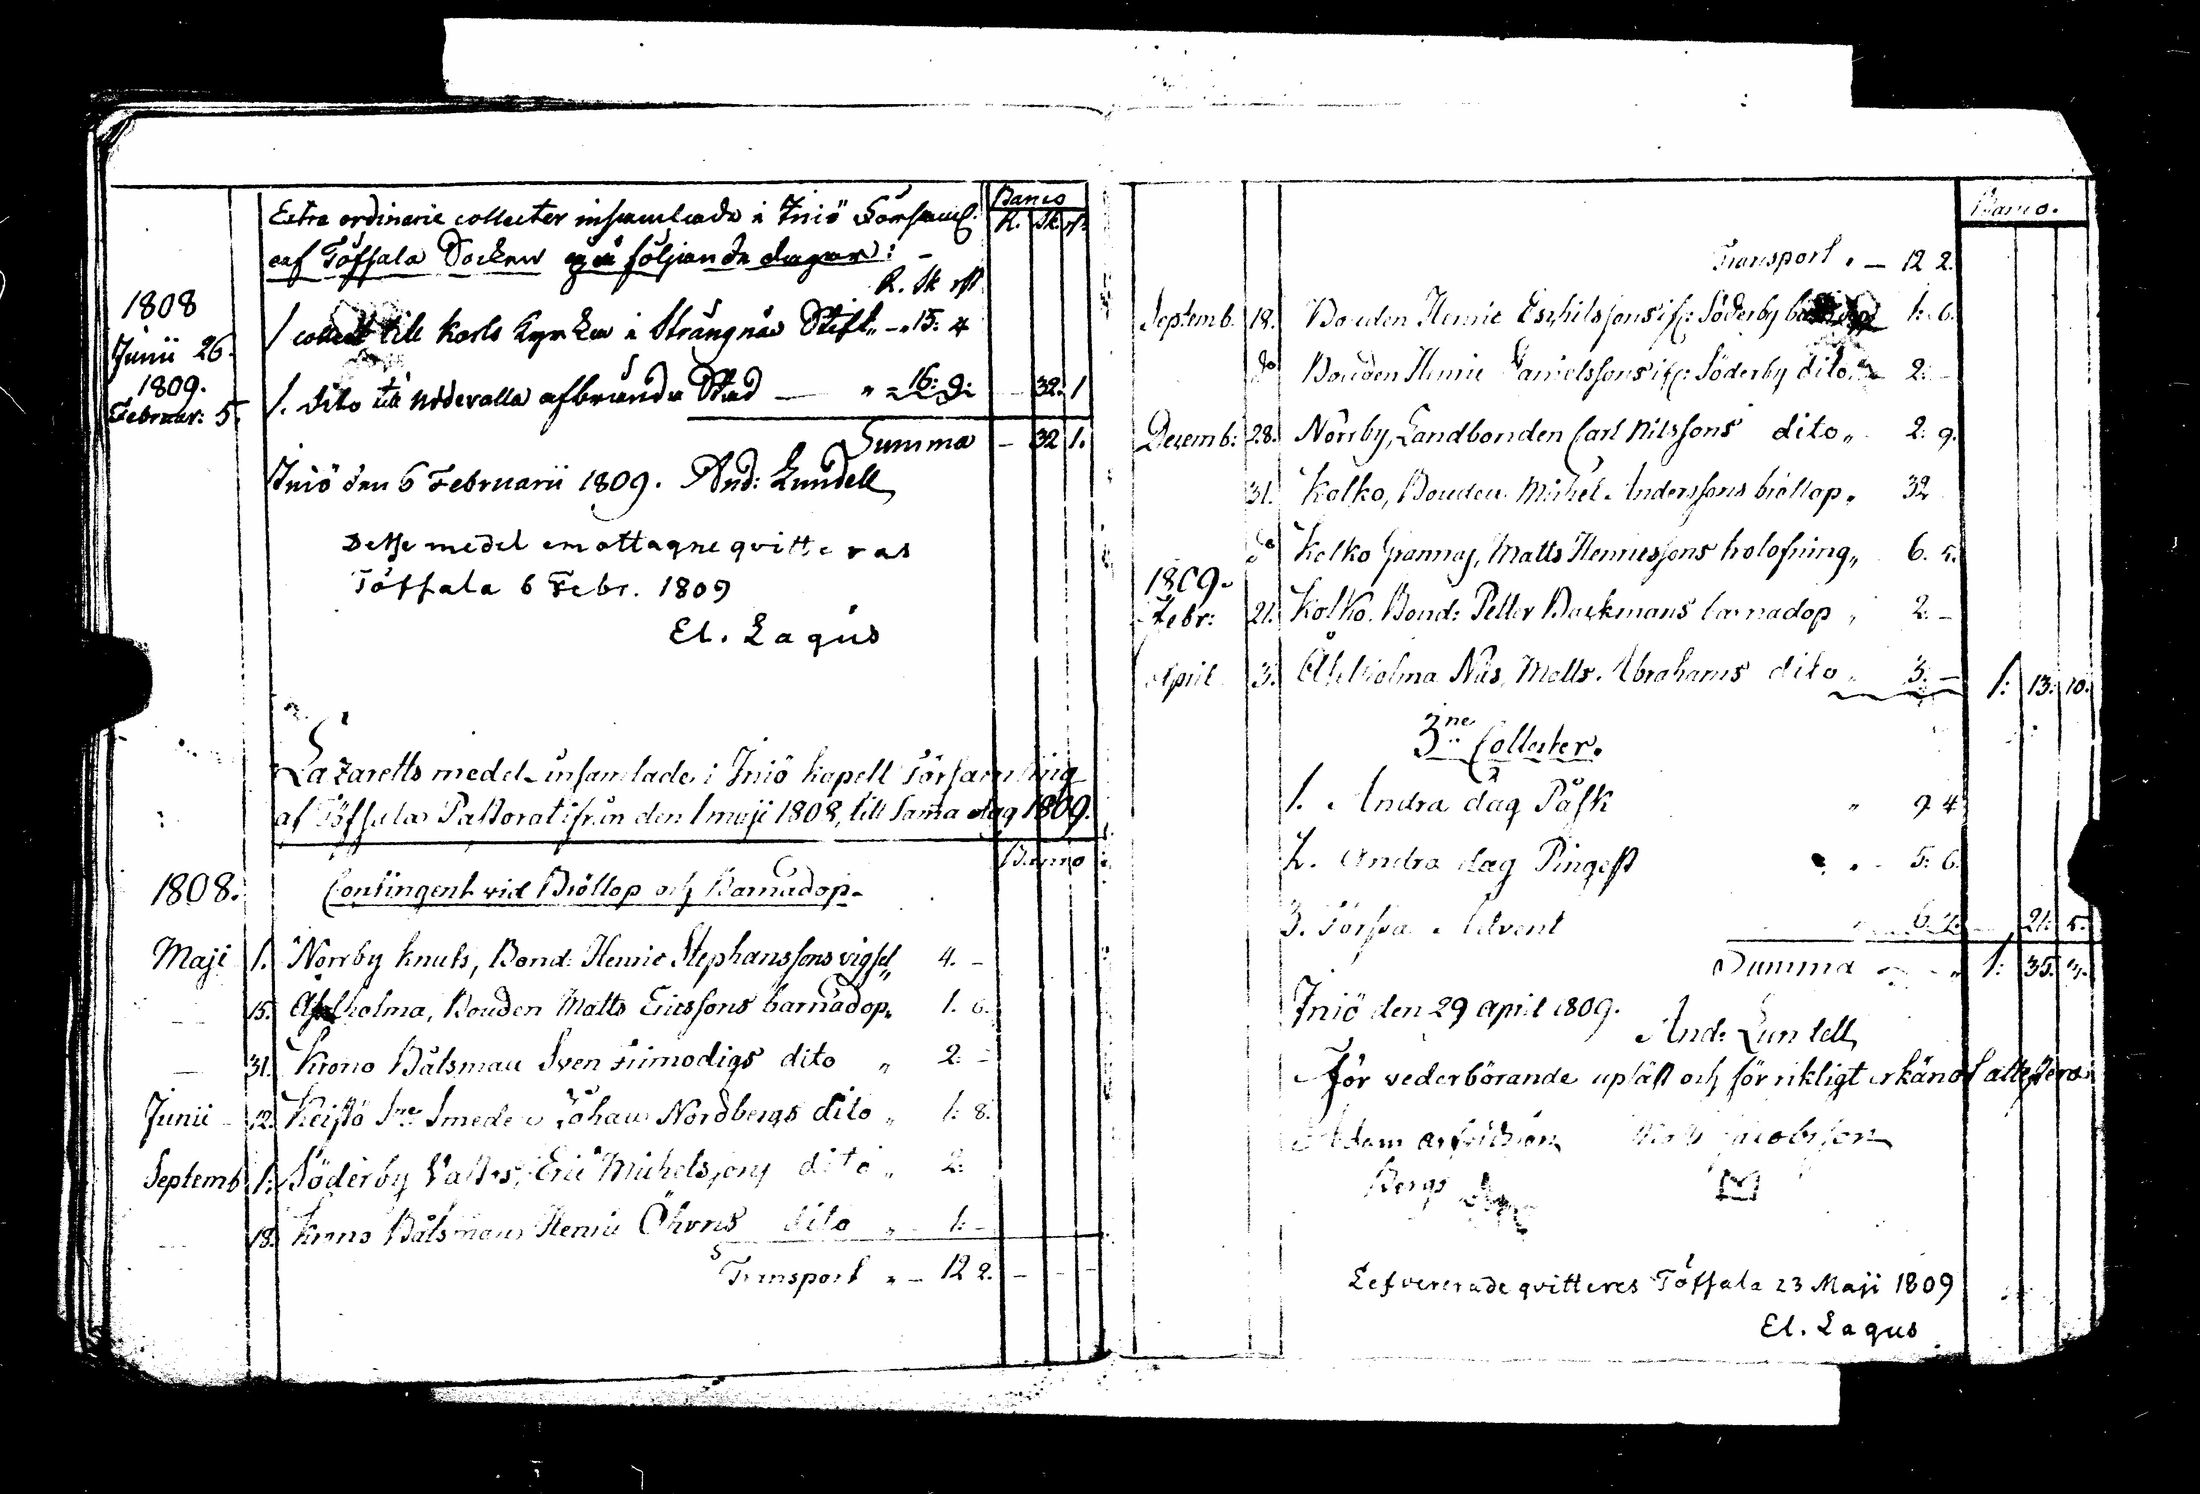 Banco
Extra ordinarie collecter insamlade i Iniö Församl:
R. sk. rst
af Töfsala Socken på följande dagar:
R. sk rst
1808
Junii 26. 1 collect till Karls Kyrka i Strängnäs Stift „ – „ 15: 4
1809.
Februar: 5. 1. dito till afbrända Stad — „ = 16: 9: – 32. 1
Summa – 32 1.
Iniö den 6 Februarii 1809. And: Lundell
Desse medel emottagne qvitteras
Töfsala 6 Febr. 1809
El. Lagus
Lazaretts medel insamlade i Iniö Kapell Församling
af Töfsala Pastorat ifrån den 1 maji 1808, till sama dag 1809.
Banco
1808. Contingent vid Bröllop och Barnadop.
Maji 1. Norrby Knuts, Bond: Henric Stephanssons vigsel „ 4. –
— 15. Åhlholma, Bonden Matts Ericssons barnadop „ 1. 6.
— 31. Krono Båtsman Sven dito „ 2: –
Junii – 12. Keistö Smeden Johan Nordbergs dito „ 1: 8.
Septemb 1: Söderby Eric Michelssons dito „ 2:
— 18. Krono Båtsman Henric Öhrns dito „ 1: –
Transport „ – 12 2. – – –
Banco.
Transport „ – 12 2.
Septemb. 18. Bonden Henric Eschilssons if: Söderby 1: 6.
do Bonden Henric Danielssons if: Söderby dito „ 2: –
Decemb: 28. Norrby, Landbonden Carl Nilssons dito „ 2: 9.
31. Kolko, Bonden Michel Anderssons bröllop „ 32
do Kolko Grannas, Matts Henricssons „ 6. 5.
1809.
Febr: 21. Kolko. Bond: Petter Backmans barnadop „ 2: –
April 3. Åhlholma Näs, Matts Abrahams dito „ 3. – 1: 13: 10.
3ne Collecter.
1. Andra dag Påsk „ 9 4
2. Andra dag Pingest „ – 5: 6.
3. Första Advent 6 – 21: 5.
Summa – „ 1: 35. 3.
Iniö den 29 April 1809.
And: Lundell
För vederbörande upläst och för riktigt erkändt attestera
Adam
Matts Jacobsson
Bergs
Lefvererade qvitteres Töfsala 23 Maji 1809
El. Lagus